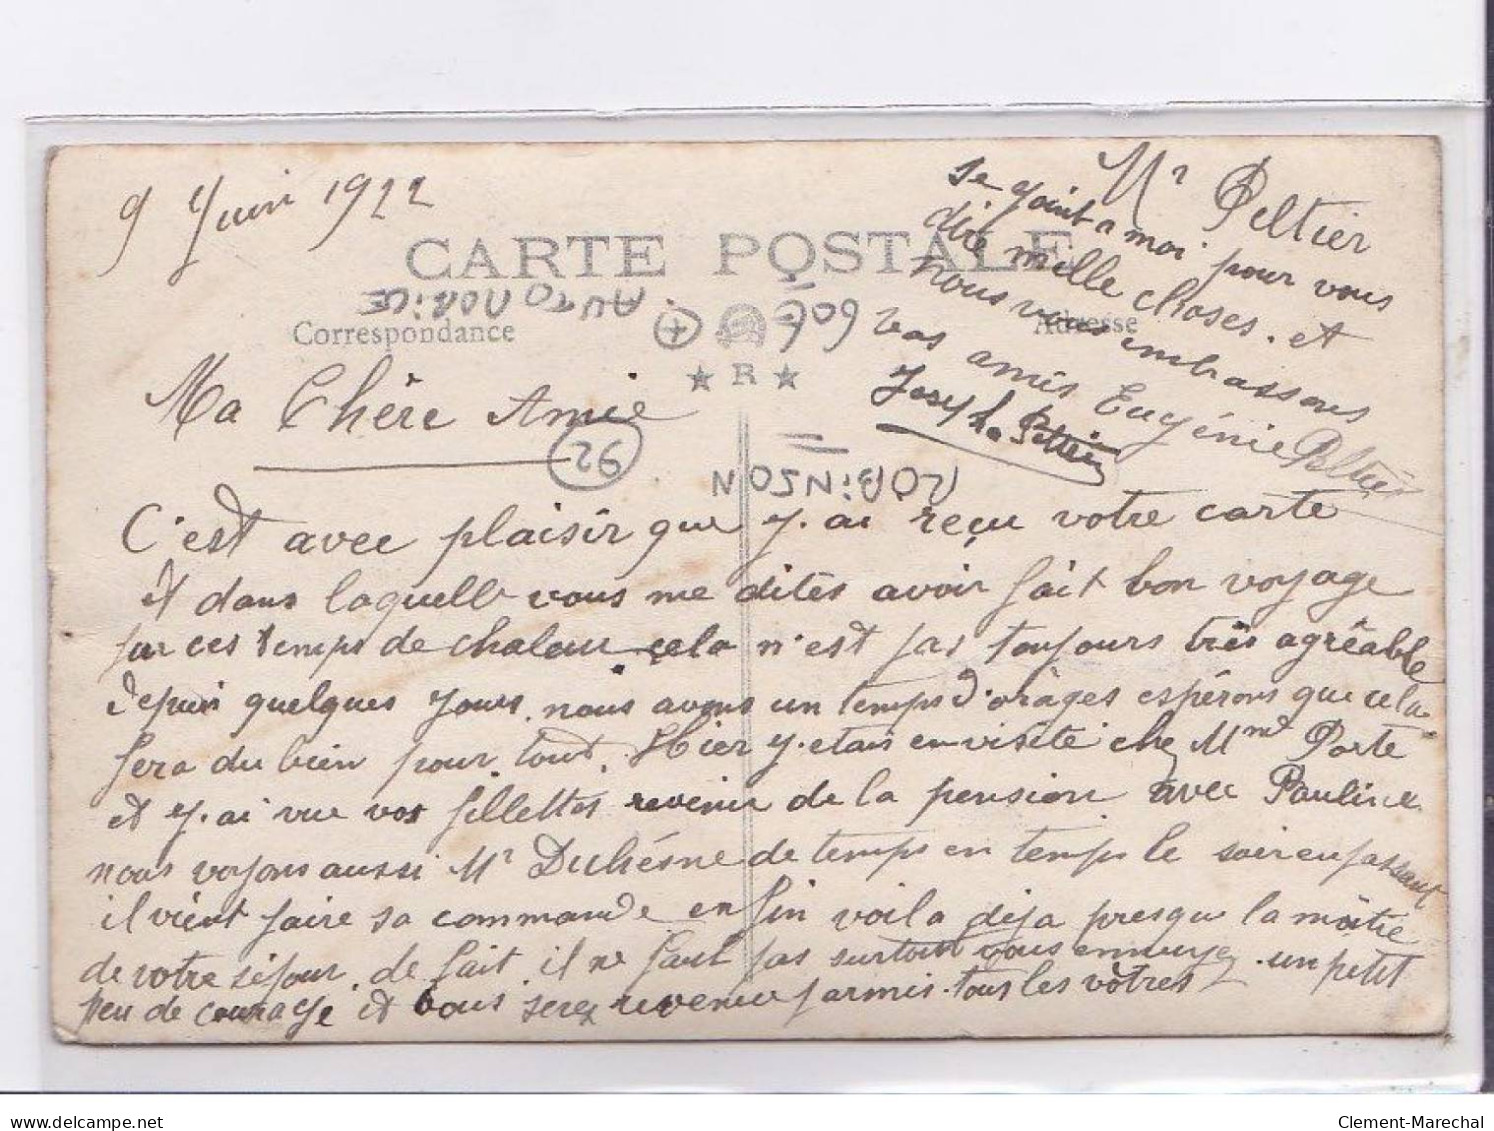 9 Juin 1922
CARTE POSTALE
Correspondance
Adresse
R
AUTOMOBILE
60€
92
ROBINSON
Ma Chère Amie
C'est avec plaisir que j'ai reçu votre carte
et dans laquelle vous me dites avoir fait bon voyage
par ces temps de chaleur cela n'est pas toujours très agréable
depuis quelques jours. nous avons un temps d'orages espérons que cela
fera du bien pour tout. Hier j'etais en visite chez Mme Porte
et j'ai vue vos fillettes revenir de la pension avec Pauline
nous voyons aussi Mr Duhésne de temps en temps le soir en passant
il vient faire sa commande enfin voila déja presque la moitie
de votre séjour. de fait il ne faut pas surtout vous ennuyez. un petit
peu de courage et vous serez revenue parmis tous les vôtres
Mr Peltier
se joint a moi pour vous
dire mille choses. et
nous vous embrassons
vos amis Eugénie Peltier
Joseph